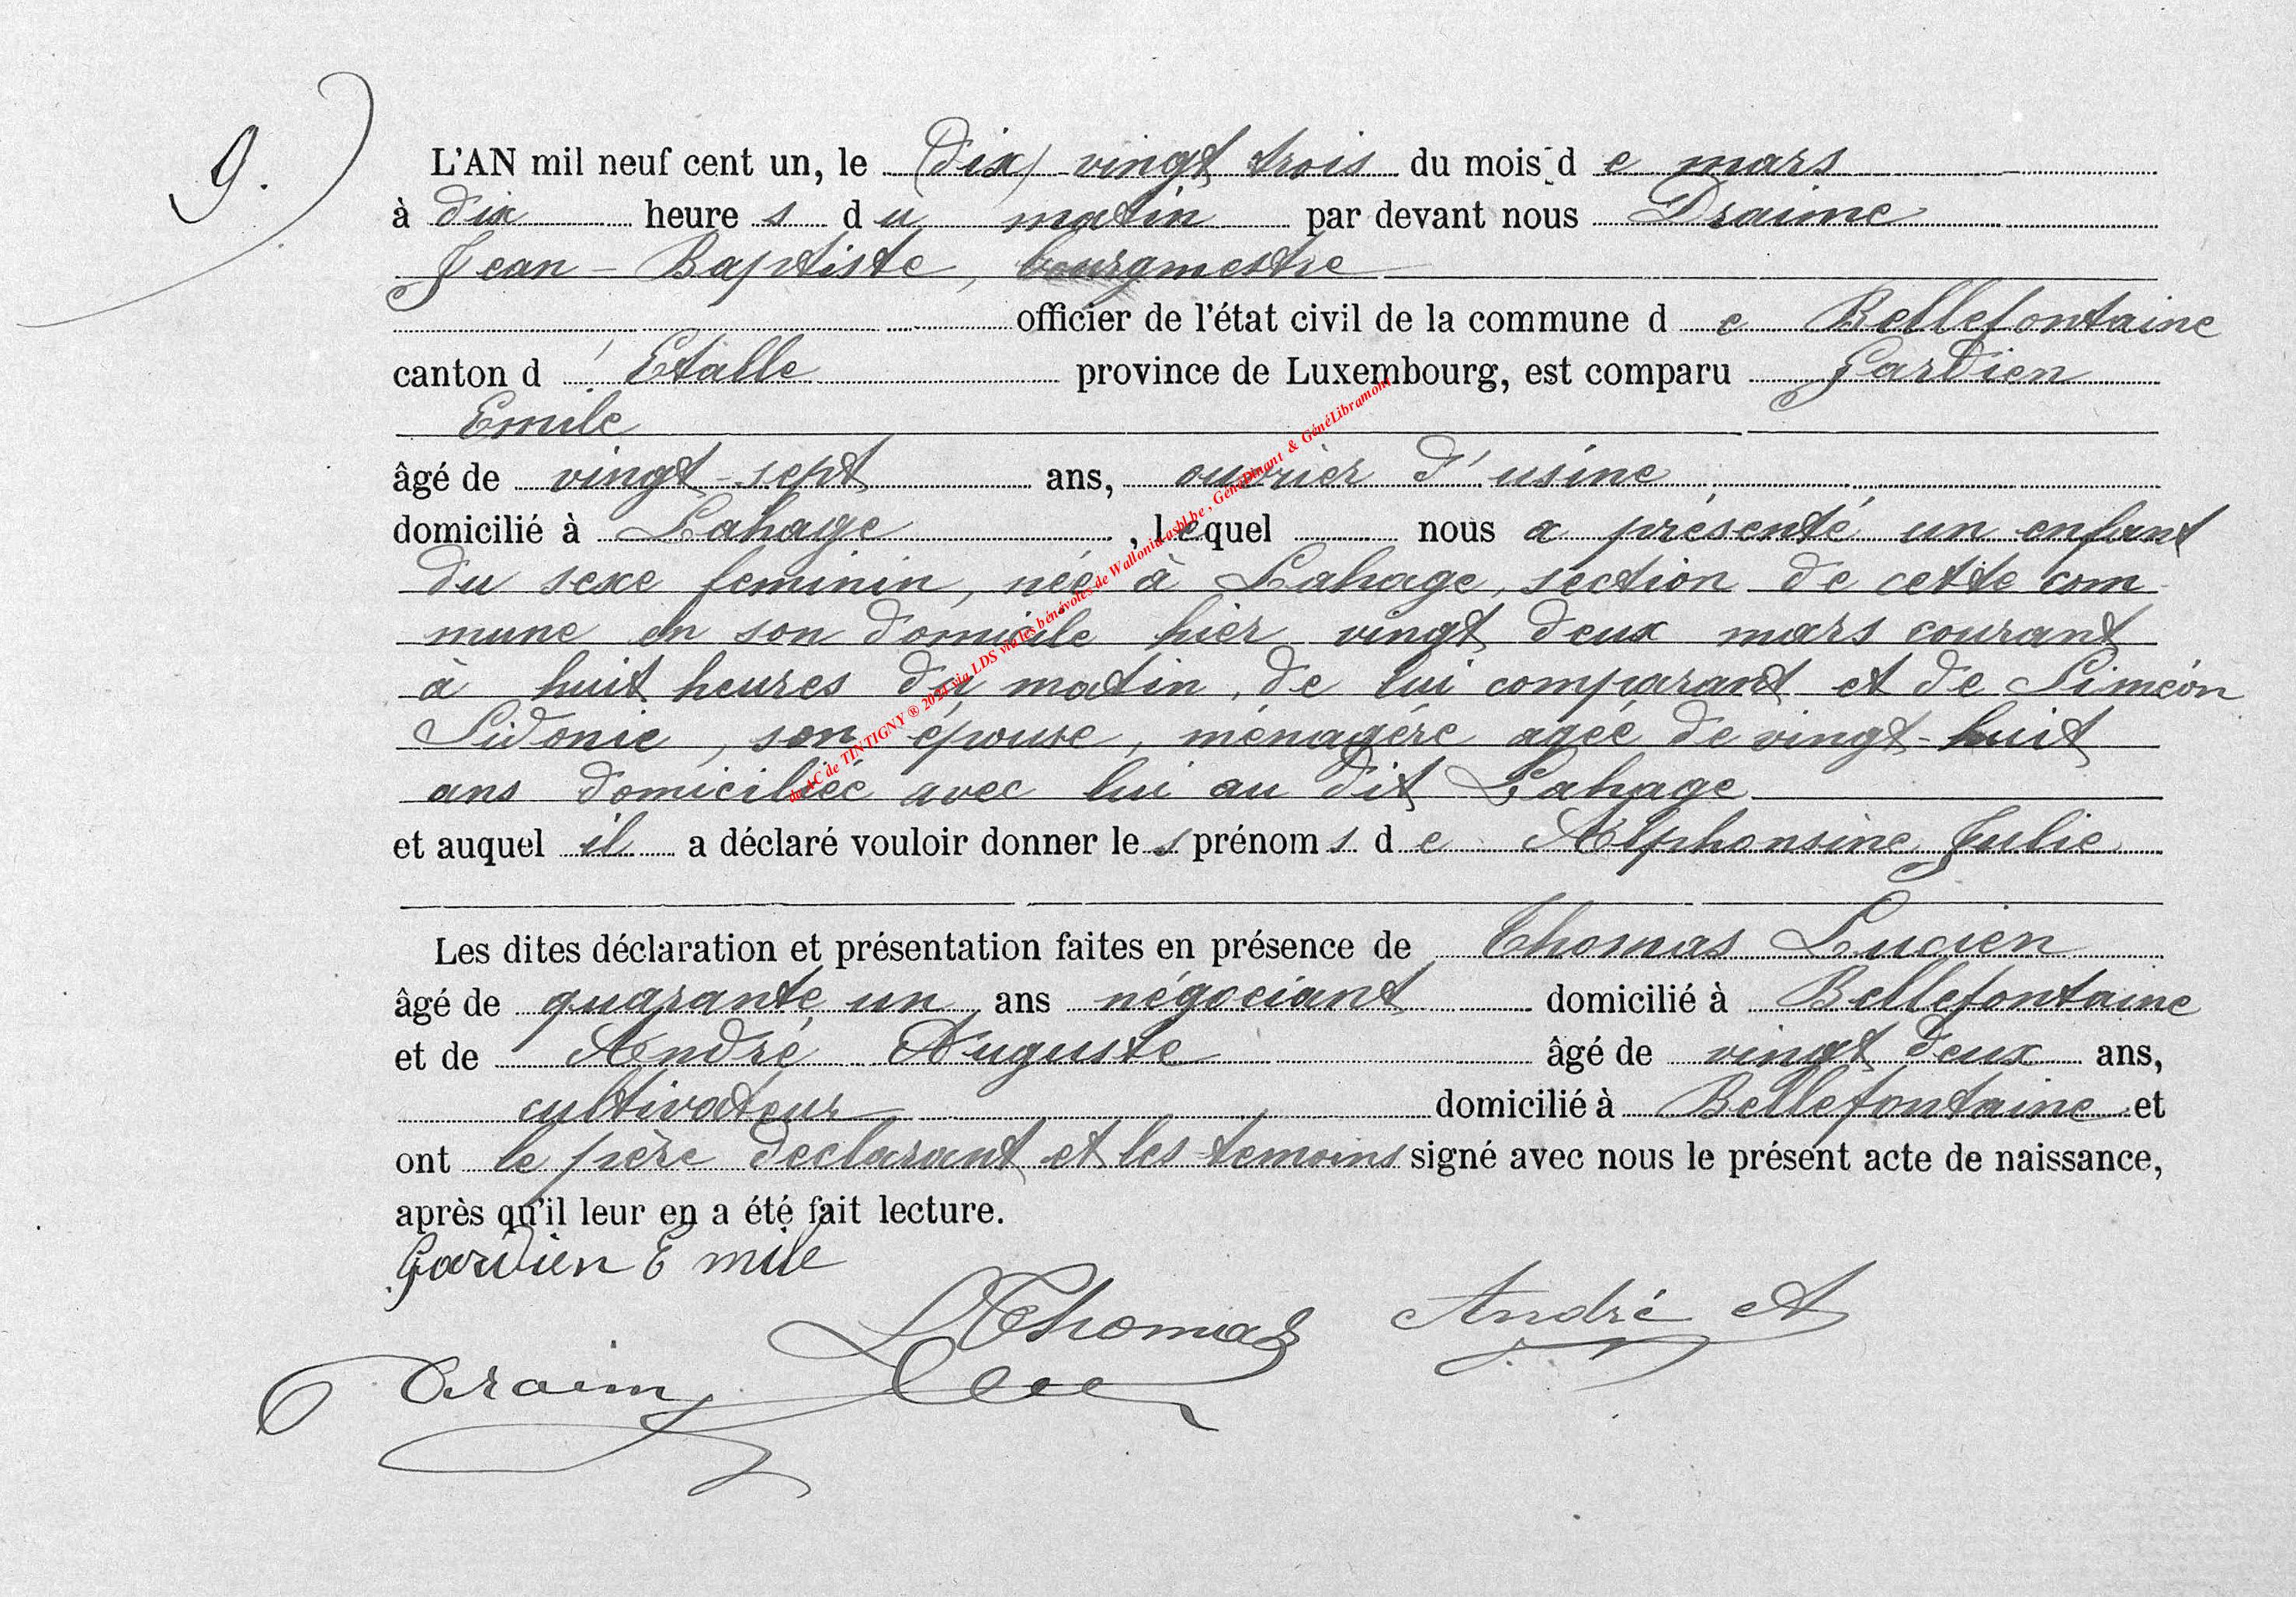 9.
L'AN mil neuf cent un, le (dix) vingt trois du mois de mars
à dix heures du matin par devant nous Draime
Jean-Baptiste, bourgmestre
officier de l'état civil de la commune de Bellefontaine
canton d'Etalle province de Luxembourg, est comparu Gardien
Emile
âgé de vingt-sept ans, ouvrier d'usine
domicilié à Lahage, lequel nous a présenté un enfant
du sexe feminin, née à Lahage, section de cette com-
mune en son domicile hier vingt deux mars courant
à huit heures du matin, de lui comparant et de Siméon
Sidonie, son épouse, ménagère agée de vingt-huit
ans domiciliée avec lui au dit Lahage
et auquel il a déclaré vouloir donner les prénoms de Alphonsine Julie
Les dites déclaration et présentation faites en présence de Thomas Lucien
âgé de quarante un ans négociant domicilié à Bellefontaine
et de André Auguste âgé de vingt deux ans,
cultivateur domicilié à Bellefontaine et
ont le père declarant et les temoins signé avec nous le présent acte de naissance,
après qu'il leur en a été fait lecture.
Gardien Emile
LThomas André A
Draime
du AC de TINTIGNY ® 2024 via LDS via les bénévoles de Wallonia-asbl.be, GénéDinant & GénéLibramont